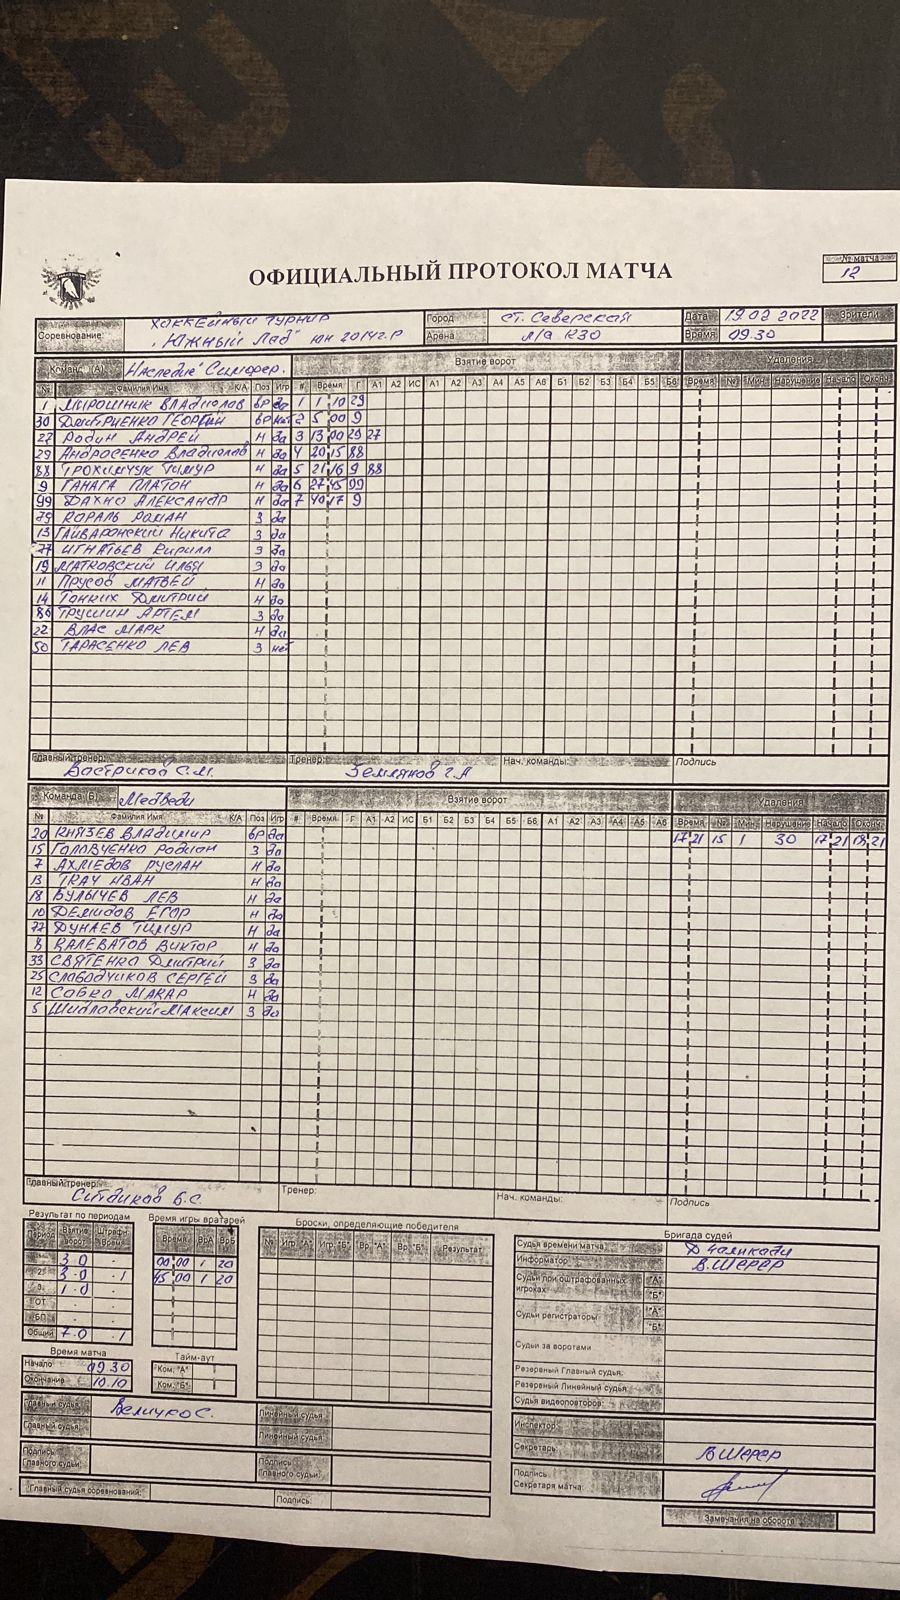 ОФИЦИАЛЬНЫЙ ПРОТОКОЛ МАТЧА
№ матча
12
Соревнование: Хоккейный турнир "Южный Лёд" юн 2014г.р
Город ст. Северская
Арена л/а КЗО
Дата 19 02 2022
Время 09.30
Зрители
Команда (А) "Наследие" Симфер.
Взятие ворот
Удаления
№ Фамилия Имя К/А Поз Игр # Время Г А1 А2 ИС А1 А2 А3 А4 А5 А6 Б1 Б2 Б3 Б4 Б5 Б6 Время № Мин Нарушение Начало Оконч.
1 Мирошник Владислав вр да 1 1 10 29
30 Дмитриенко Георгий вр нет 2 5 00 9
27 Родин Андрей н да 3 13 00 29 27
29 Андросенко Владислав н да 4 20 15 88
88 Трохимчук Тимур н да 5 21 16 9 88
9 Ганага Платон н да 6 27 45 99
99 Дахно Александр н да 7 40 17 9
79 Кораль Роман з да
13 Гайваронский Никита з да
77 Игнатьев Кирилл з да
19 Матковский Илья з да
11 Прусов Матвей н да
14 Тонких Дмитрий н да
86 Трушин Артем з да
22 Влас Марк н да
50 Тарасенко Лев з нет
Главный тренер: Вастриков С.М.
Тренер: Земляков Г.А
Нач. команды:
Подпись
Команда (Б) Медведи
Взятие ворот
Удаления
№ Фамилия Имя К/А Поз Игр # Время Г А1 А2 ИС Б1 Б2 Б3 Б4 Б5 Б6 А1 А2 А3 А4 А5 А6 Время № Мин Нарушение Начало Оконч.
20 Князев Владимир вр да 17 21 15 1 30 17 21 18 21
15 Головченко Родион з да
7 Ахмедов Руслан н да
13 Ткач Иван н да
18 Булычев Лев н да
10 Демидов Егор н да
77 Дунаев Тимур н да
8 Калеватов Виктор н да
33 Святенко Дмитрий з да
25 Слабодчиков Сергей з да
12 Сабко Макар н да
5 Шидловский Максим з да
Главный тренер: Ситдиков Б.С.
Тренер:
Нач. команды:
Подпись
Результат по периодам
Период Взятие ворот Штрафн. время
1 3 0 .
2 3 0 . 1
3 1 0 .
ОТ
БП
Общий 7 0 . 1
Время матча
Начало 09.30
Окончание 10.10
Время игры вратарей
Время ВрА ВрБ
00 00 1 20
45 00 1 20
Тайм-аут
Ком. "А"
Ком. "Б"
Броски, определяющие победителя
№ Игр "А" Игр "Б" Вр. "А" Вр. "Б" Результат
Бригада судей
Судья времени матча
Информатор В.Шерер
Судьи при оштрафованных игроках "А" "Б"
Судьи регистраторы "А" "Б"
Судьи за воротами
Резервный Главный судья:
Резервный Линейный судья
Судья видеоповторов:
Главный судья: Величко С.
Линейный судья
Главный судья:
Линейный судья
Подпись Главного судьи:
Подпись Главного судьи:
Главный судья соревнований:
Подпись:
Инспектор:
Секретарь: В.Шерер
Подпись Секретаря матча:
Замечания на обороте